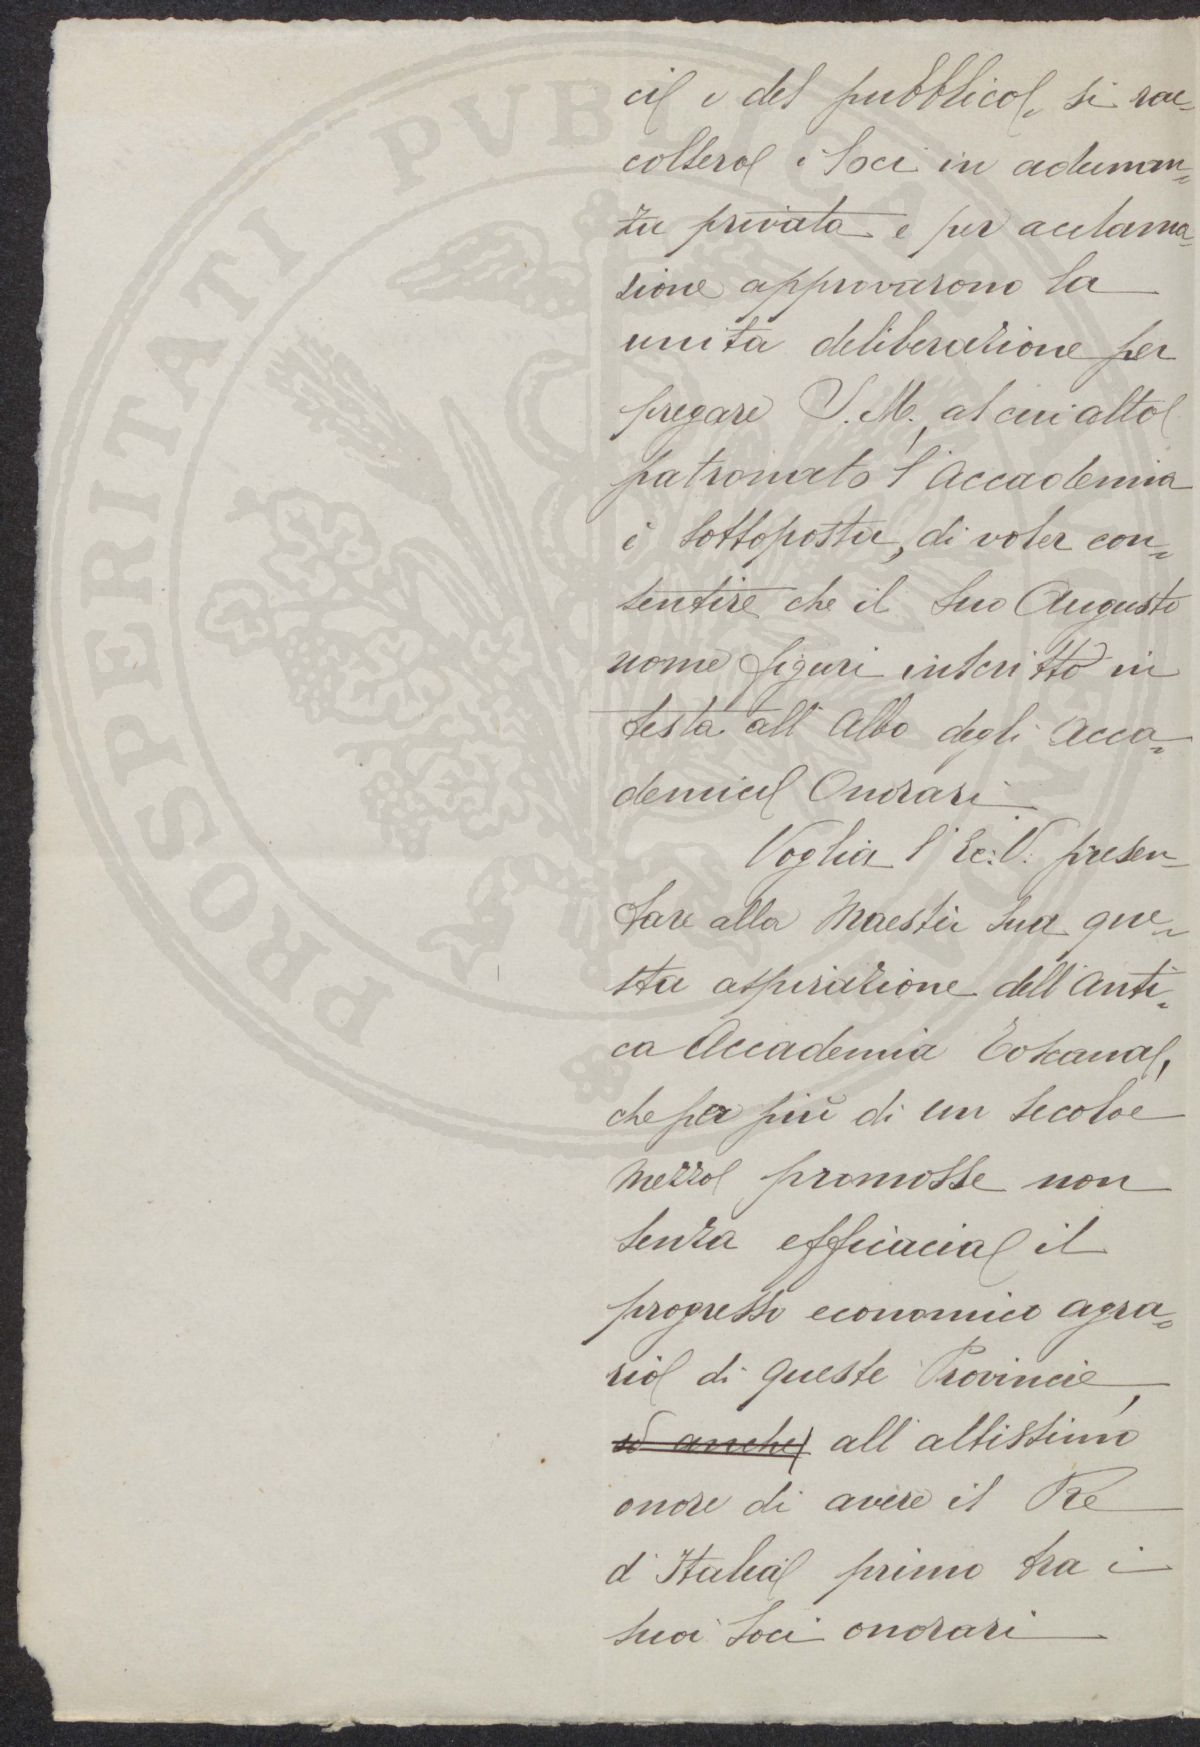 ci e del pubblico, si rac=
colsero i Soci in adunan=
za privata e per acclama=
zione approvarono la
unita deliberazione per
pregare S. M., al cui alto
patronato l'Accademia
è sottoposta, di voler con=
sentire che il Suo Augusto
nome figuri inscritto in
testa all'Albo degli Acca=
demici Onorari
Voglia l'Ec: V: presen=
tare alla Maestà Sua que=
sta aspirazione dell'Anti=
ca Accademia Toscana,
che per più di un secolo e
mezzo promosse non
senza efficacia il
progresso economico agra=
rio di queste Provincie,
ed anche all'altissimo
onore di avere il Re
d'Italia primo tra i
suoi Soci onorari
PROSPERITATI PVBLICAE